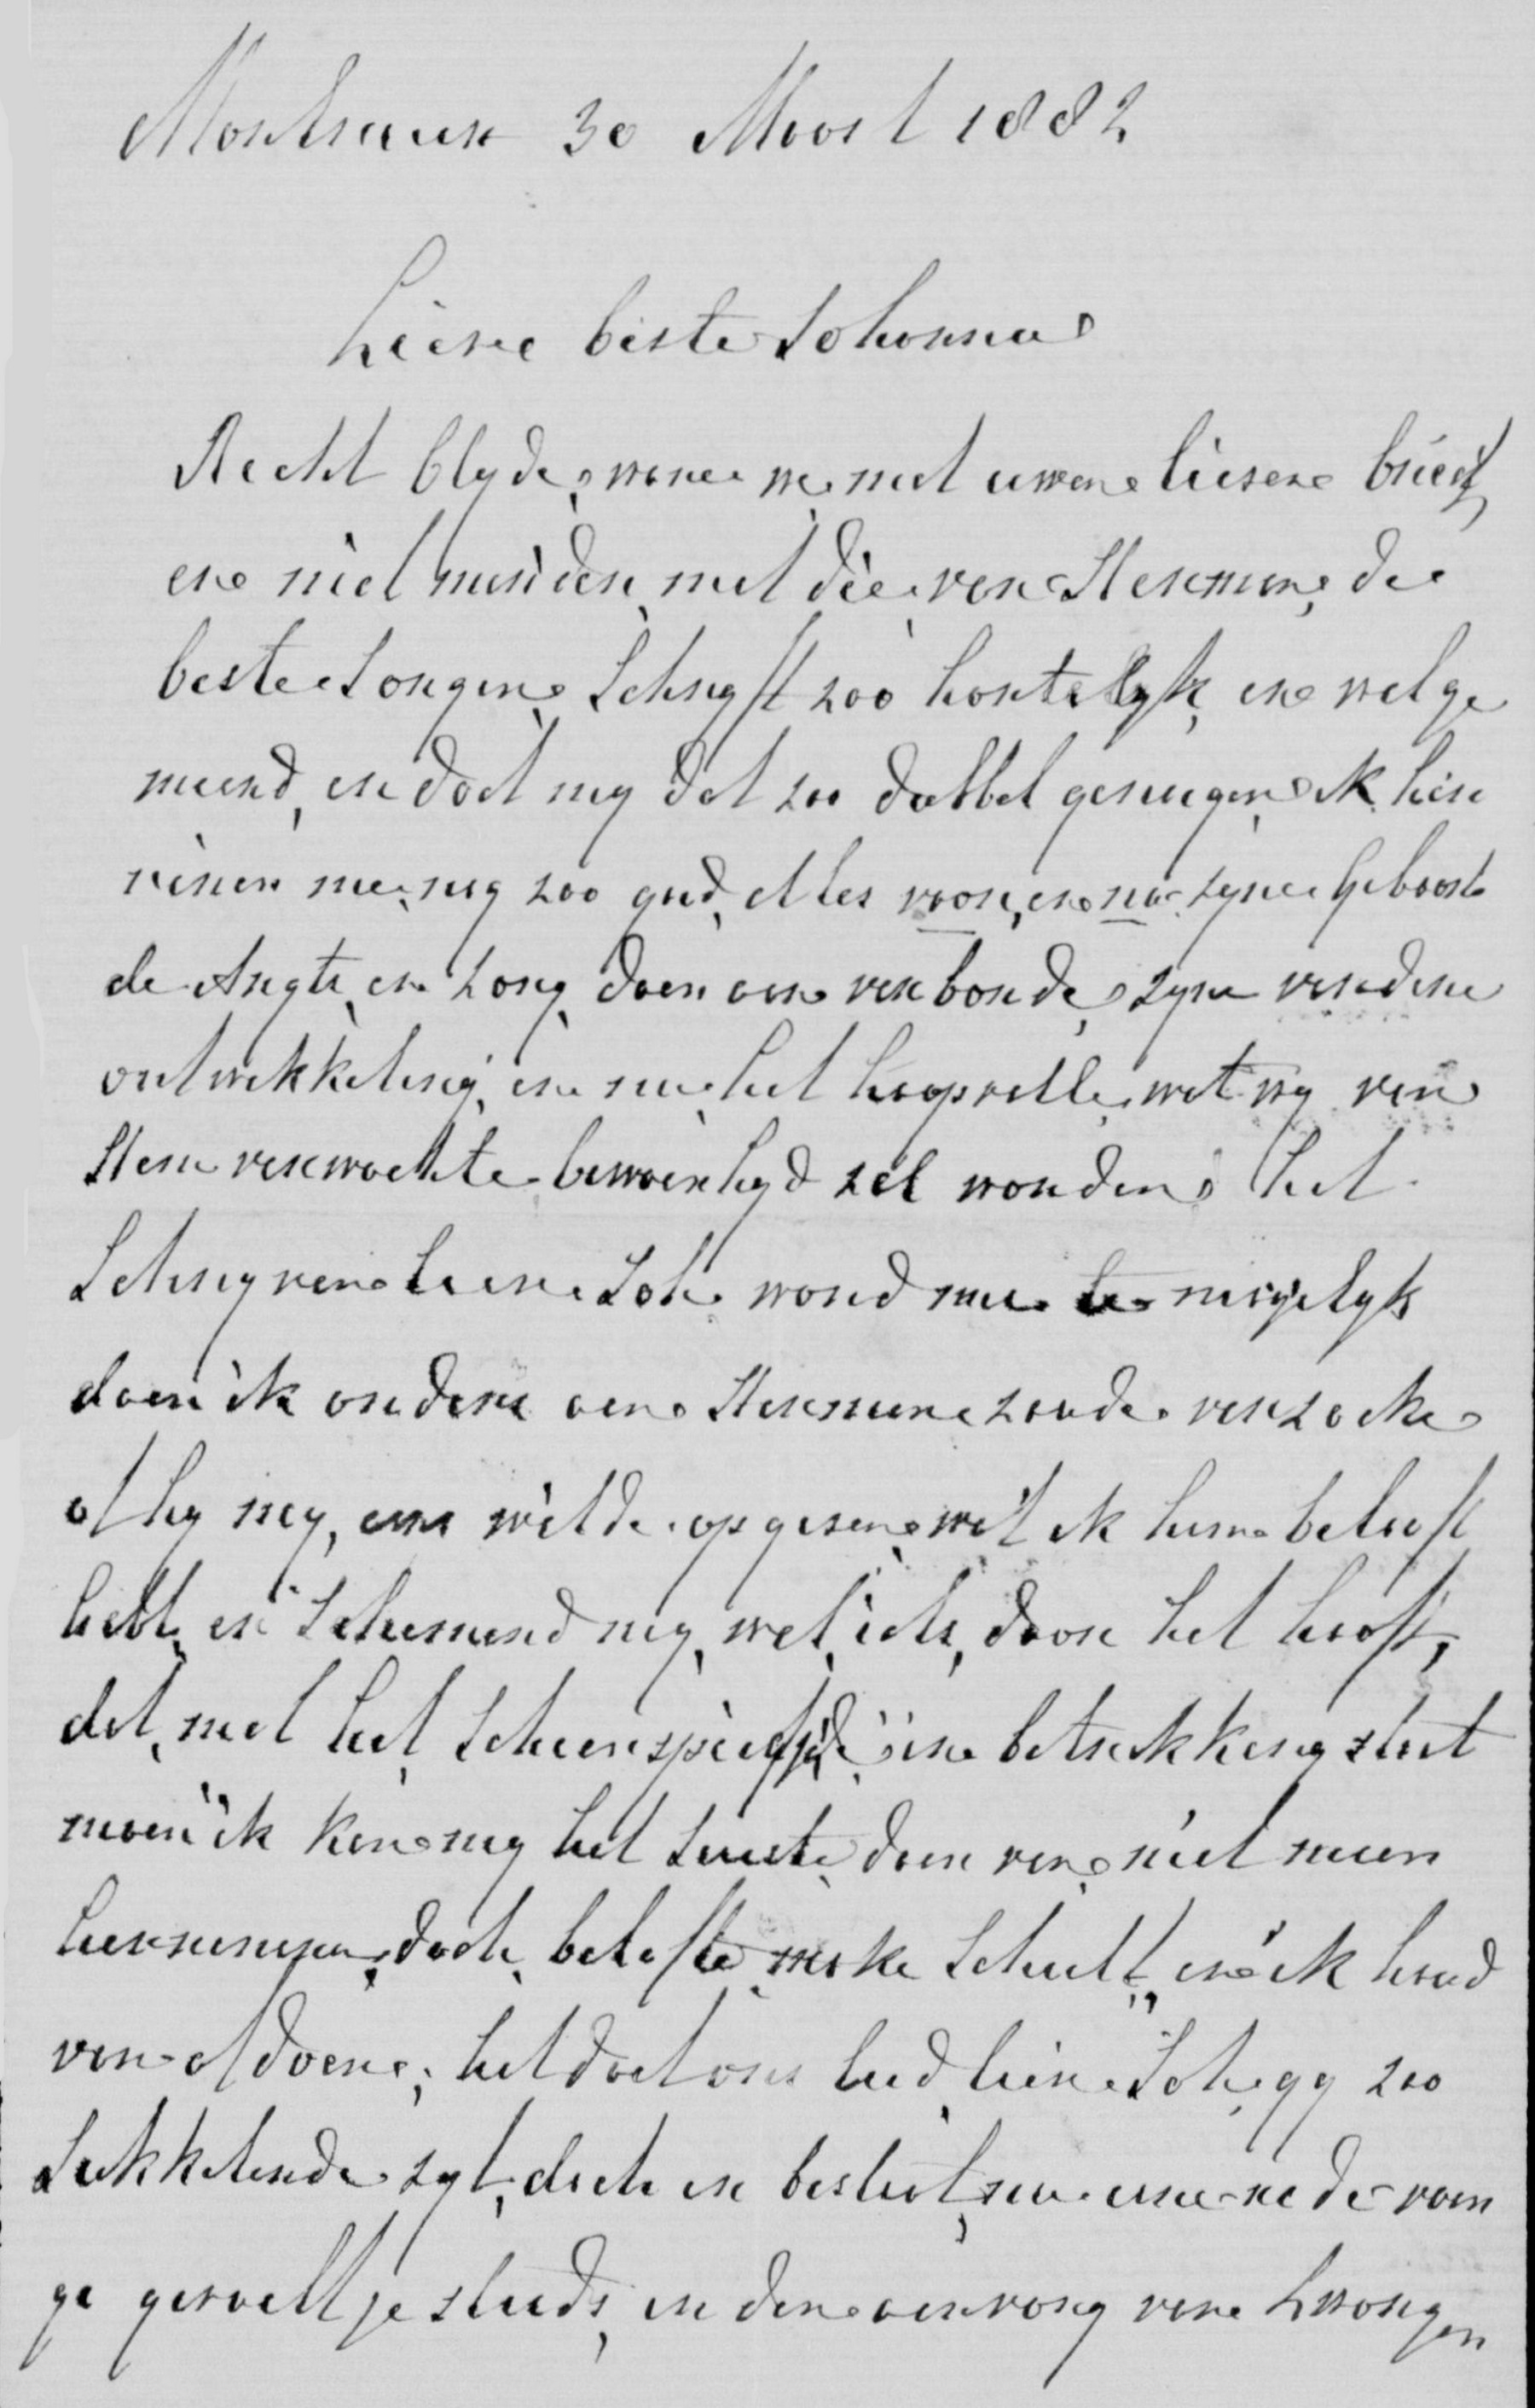 Montreux 30 Maart 1882
Lieve beste Johanna
Recht blyde, waren we met uwen lieven brief,
en niet minder, met die, van Herman, de
beste Jongen, Schryft zoo hartelyk, en welge
meend, en doet my dat zoo dubbel genoegen, ik her
inner me, nog zoo goed, alles voor, en na zyne geboorte
de Angst, en Zorg, daar aan verbonden, zyne verdere
ontwikkeling, en nu, het hoopvolle, wat wy van
Hem verwachte bewaarheyd zal worden, het
Schryven lieve Joh. word me moeyelyk
daar ik anders aan Herman zoude verzoeke
of hy my, een wilde opgeven, wat ik hem belooft
hebt, er Schemerd my, wel, iets, door het hooft,
dat, met het, Scheerspiegeltje, in betrekking staat
maar ik kan my het Juiste, daar van, niet meer
herinneren, doch, belofte, make Schult,, en ik houd
van afdoen, het doet ons leed, lieve Joh, gy zoo
Sukkelende zyt, doch er bestaat, nu eene rede voor
ge gevoelt je steeds, in den aanvang van Zwanger